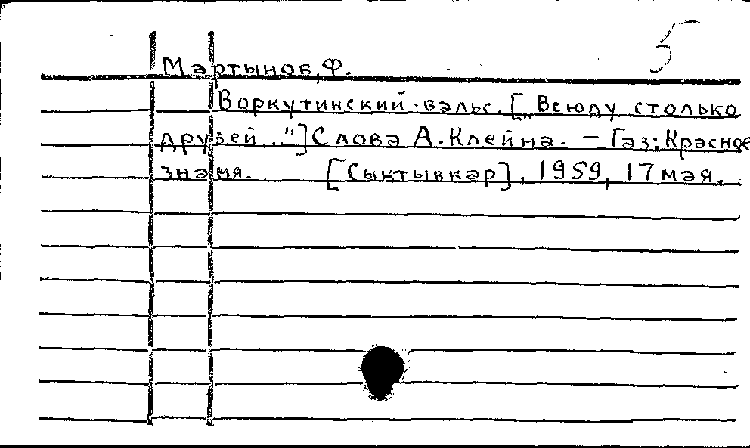 5
Мартынов, Ф.
Воркутинский вальс. [„Всюду столько
друзей..."] Слова А. Клейна. — Газ: Красное
знамя. [Сыктывкар], 1959, 17 мая.